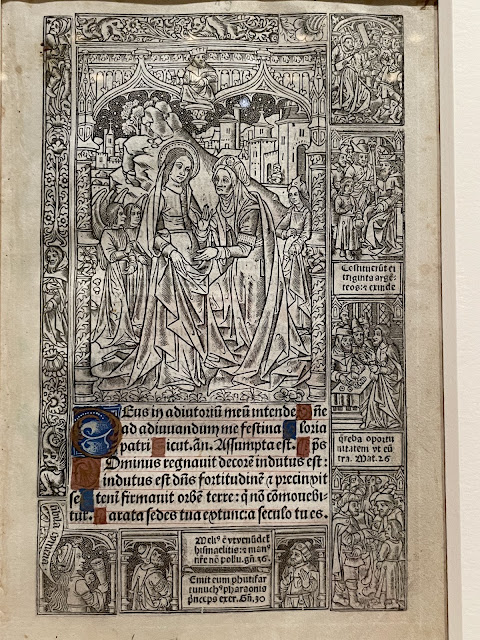 DEus in adiutoriũ meũ intende Dñe
ad adiuuandum me festina Gloria
patri Sicut. añ. Assumpta est. ps
Dominus regnauit decorẽ indutus est:
indutus est dñs fortitudinẽ ⁊ precinxit
se Eteni firmauit orbẽ terre: q̃ nõ cõmouebi
tur. Parata sedes tua ex tunc: a seculo tu es.
Cõstituerũt ei
triginta argẽ
teos: ⁊ exinde
q̃reba oportu
nitatem vt eũ
tra. Mat. 26
Meliꝰ ẽ vt
hismaelitis: ⁊ manꝰ
nr̃e nõ pollu. gñ. 36.
Emit eum phutifar
eunuchꝰ pharaonis
p̃nceps exer. Gñ. 30